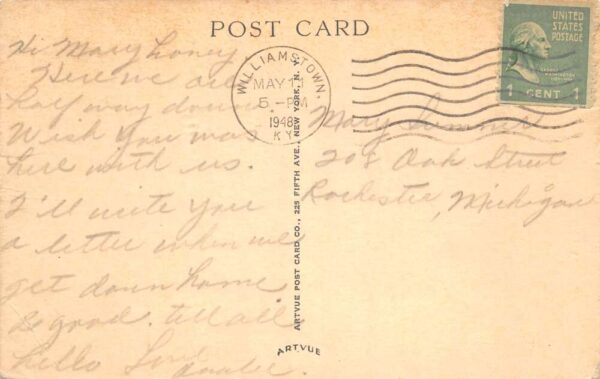 POST CARD
Hi Mary honey
Here we are
half way down
Wish you was
here with us.
I'll write you
a letter when we
get down home
So good. tell all
hello Love
WILLIAMSTOWN,
MAY 11
5 - PM
1948
KY
UNITED
STATES
POSTAGE
GEORGE
WASHINGTON
1 CENT 1
Mary
208 Oak Street
Rochester, Michigan
ARTVUE POST CARD CO., 225 FIFTH AVE., NEW YORK, N. Y.
ARTVUE